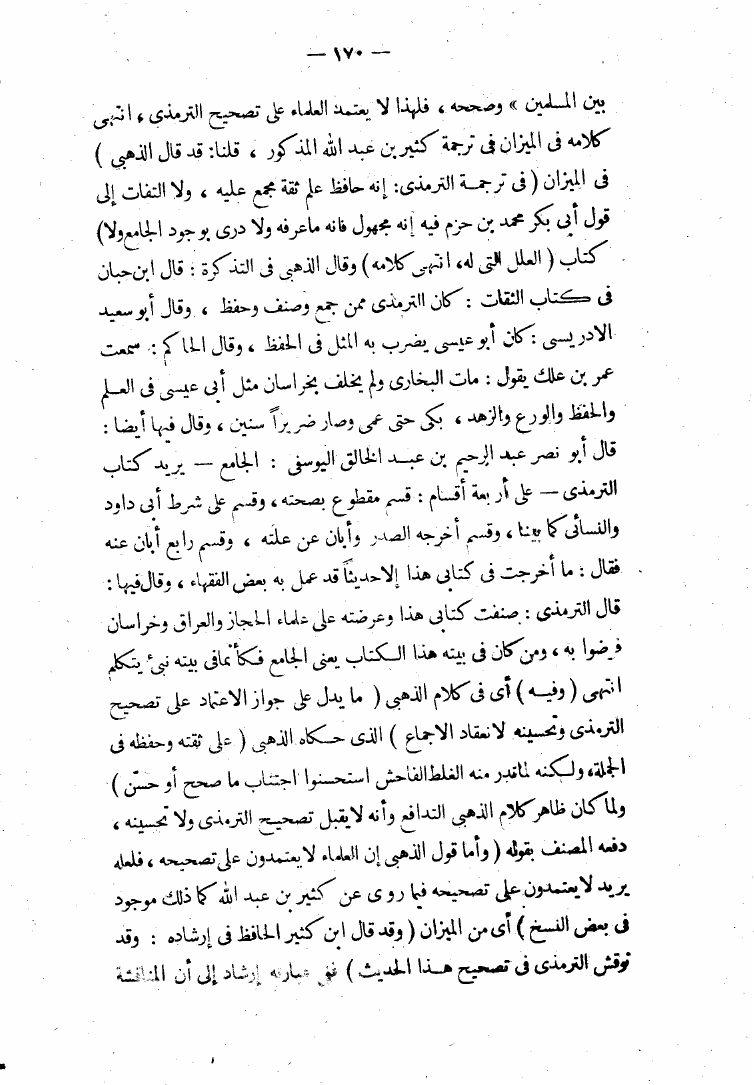 — ١٧٠ —
بين المسلمين » وصححه ، فلهذا لا يعتمد العلماء على تصحيح الترمذى ، انتهى
كلامه فى الميزان فى ترجمة كثير بن عبد الله المذكور ، قلنا : قد قال الذهبى )
فى الميزان ( فى ترجمة الترمذى : إنه حافظ علم ثقة مجمع عليه ، ولا التفات إلى
قول أبى بكر محمد بن حزم فيه إنه مجهول فانه ماعرفه ولا درى بوجود الجامع ولا )
كتاب ( العلل التى له، انتهى كلامه ) وقال الذهبى فى التذكرة : قال ابن حبان
فى كتاب الثقات : كان الترمذى ممن جمع وصنف وحفظ ، وقال أبو سعيد
الادريسى : كان أبو عيسى يضرب به المثل فى الحفظ ، وقال الحاكم : سمعت
عمر بن علك يقول : مات البخارى ولم يخلف بخراسان مثل أبى عيسى فى العلم
والحفظ والورع والزهد ، بكى حتى عمى وصار ضريراً سنين ، وقال فيها أيضا :
قال أبو نصر عبد الرحيم بن عبد الخالق اليوسفى : الجامع — يريد كتاب
الترمذى — على أربعة أقسام : قسم مقطوع بصحته ، وقسم على شرط أبى داود
والنسائى كما بينا ، وقسم أخرجه الصدر وأبان عن علته ، وقسم رابع أبان عنه
فقال : ما أخرجت فى كتابى هذا إلاحديثاً قد عمل به بعض الفقهاء ، وقال فيها :
قال الترمذى : صنفت كتابى هذا وعرضته على علماء الحجاز والعراق وخراسان
فرضوا به ، ومن كان فى بيته هذا الكتاب يعنى الجامع فكأنمافى بيته نبىء يتكلم
انتهى ( وفيه ) أى فى كلام الذهبى ( ما يدل على جواز الاعتماد على تصحيح
الترمذى وتحسينه لانعقاد الاجماع ) الذى حكاه الذهبى ( على ثقته وحفظه فى
الجملة، ولكنه لماندر منه الغلط الفاحش استحسنوا اجتناب ما صحح أو حسّن )
ولما كان ظاهر كلام الذهبى التدافع وأنه لايقبل تصحيح الترمذى ولا تحسينه ،
دفعه المصنف بقوله ( وأما قول الذهبى إن العلماء لايعتمدون على تصحيحه ، فلعله
يريد لايعتمدون على تصحيحه فيما روى عن كثير بن عبد الله كما ذلك موجود
فى بعض النسخ ) أى من الميزان ( وقد قال ابن كثير الحافظ فى إرشاده : وقد
نوقش الترمذى فى تصحيح هذا الحديث ) ففى عبارته إرشاد إلى أن المناقشة